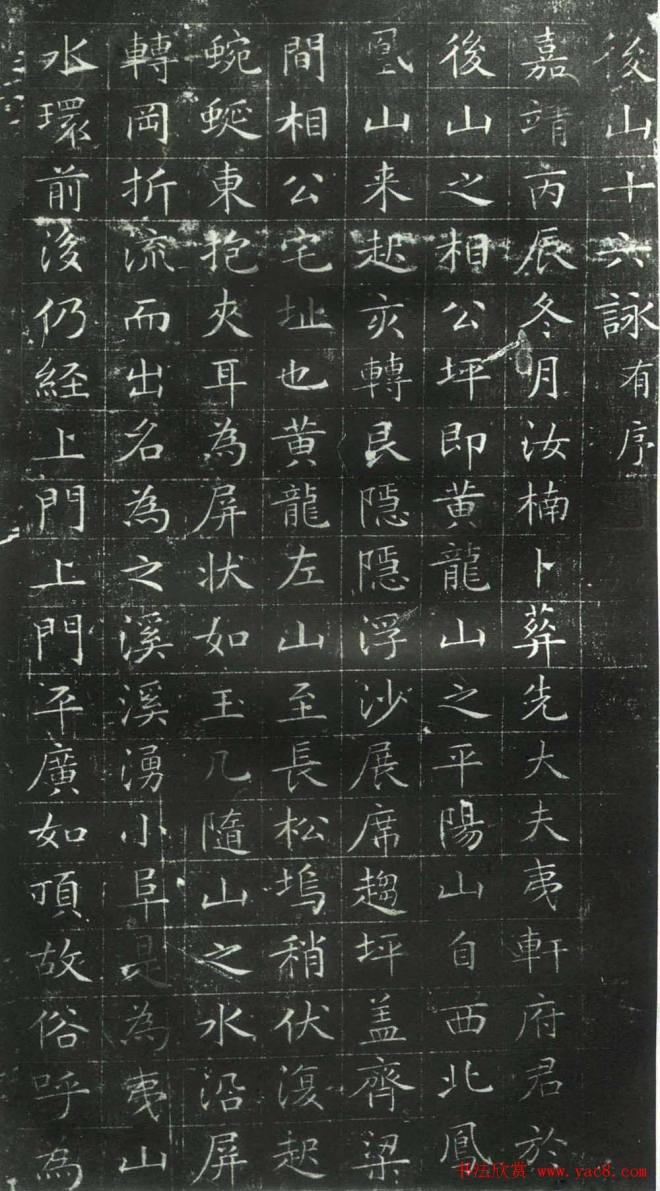 後山十六詠有序
嘉靖丙辰冬月汝楠卜葬先大夫夷軒府君於
後山之相公坪即黄龍山之平陽山自西北鳳
凰山来起亥轉艮隱隱浮沙展席趨坪盖齊梁
間相公宅址也黄龍左山至長松塢稍伏復起
蜿蜒東抱夾耳為屏状如玉几隨山之水沿屏
轉岡折流而出名為之溪溪湧小阜是為夷山
水環前後仍経上門上門平廣如頂故俗呼為
书法欣赏 www.yac8.com